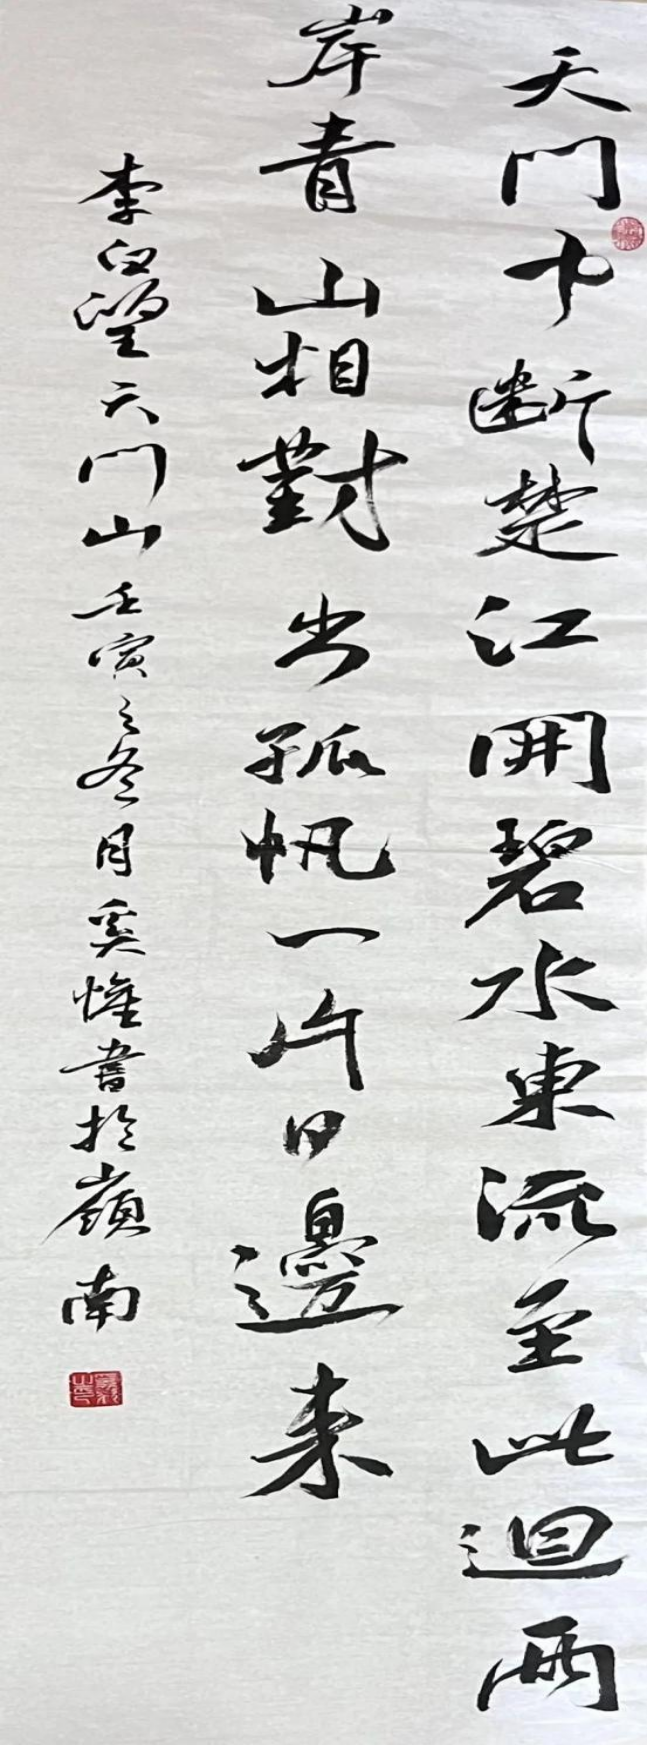 天門中斷楚江開碧水東流至此迴兩
岸青山相對出孤帆一片日邊來
李白望天門山壬寅之冬月奚惟書於嶺南